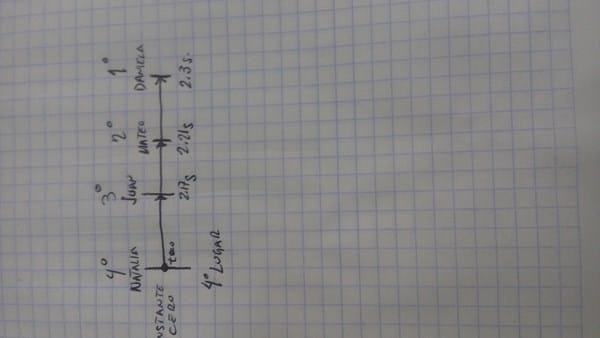 4° 3° 2° 1°
NATALIA JUAN MATEO DANIELA
t=0 2.17s 2.21s 2.3s.
INSTANTE
CERO
4° LUGAR